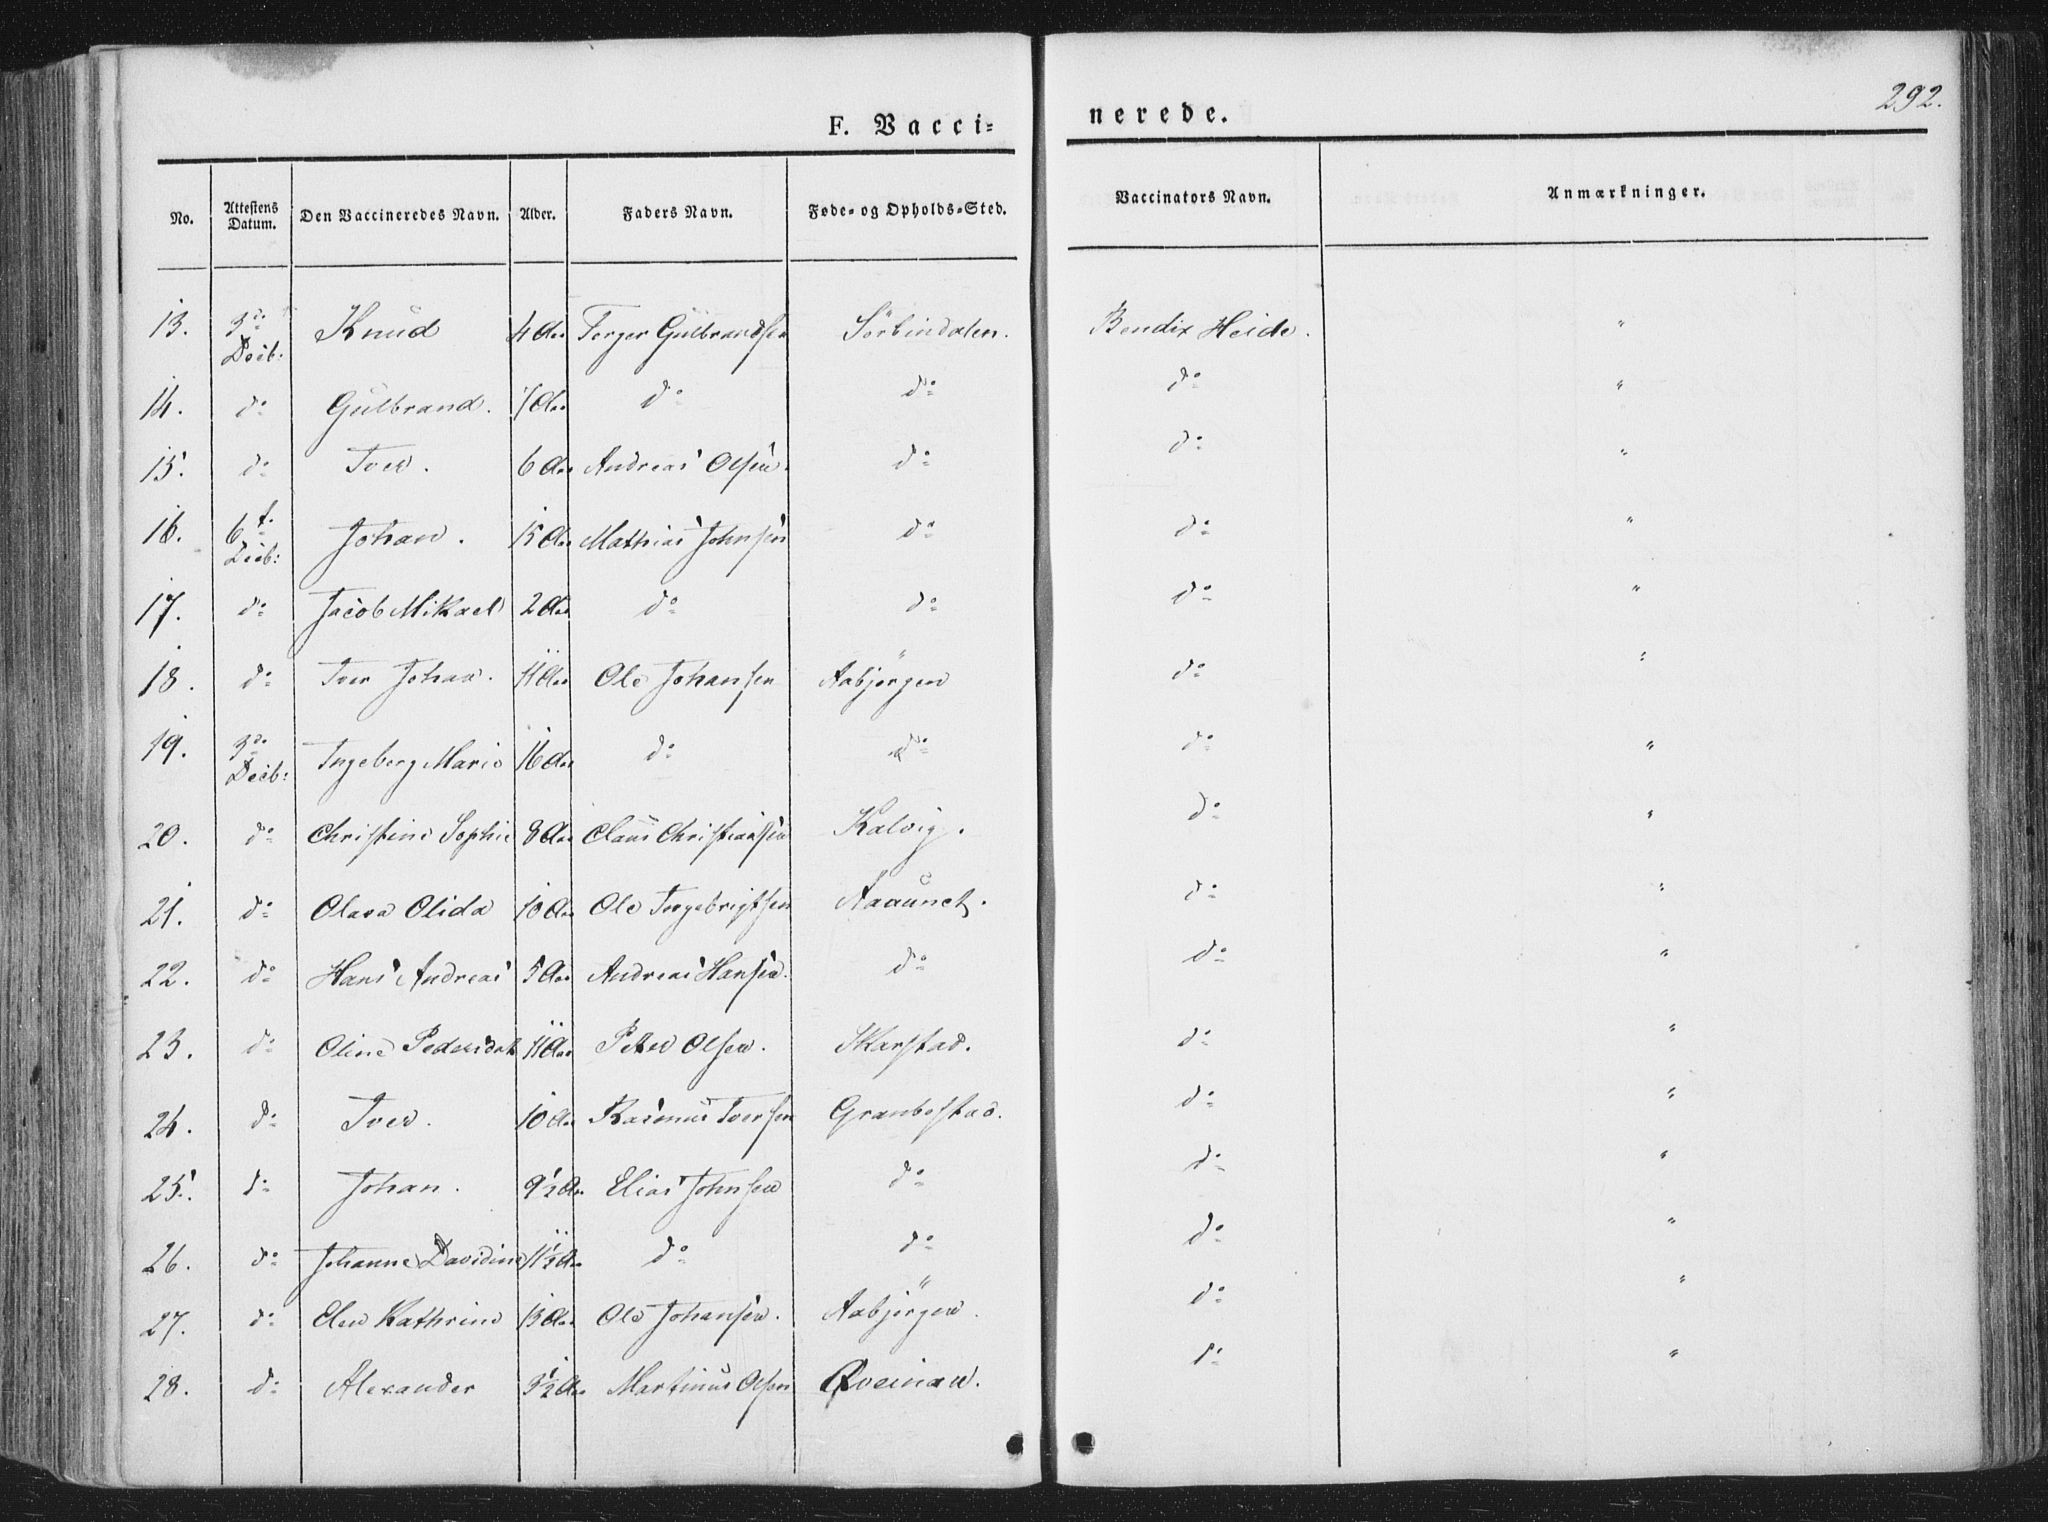 292.
F. Vacci-
nerede.
No. Attestens Datum. Den Vaccineredes Navn. Alder. Faders Navn. Føde- og Opholds-Sted. Vaccinators Navn. Anmærkninger.
13. 3die Decb: Knud 4 Aar Torger Gulbrandsen Sörbindalen. Bendix Heide. "
14. do Gulbrand. 7 Aar do do do "
15. do Iver. 6 Aar Andreas Olsen. do do "
16. 6t. Decb: Johan. 15 Aar Mathias Johnsen do do "
17. do Jacob Mikael 2 Aar do do do "
18. do Iver Johan. 11 Aar Ole Johansen Aabjörgen do "
19. 3die Decb: Ingeborg Marie 16 Aar do do do "
20. do Christine Sophie 8 Aar Claus Christiansen Kalvig. do "
21. do Olava Olida 10 Aar Ole Ingebrigtsen Aaaunet. do "
22. do Hans Andreas 5 Aar Andreas Hansen. do do "
23. do Oline Pedersdat 11 Aar Peter Olsen. Skarstad. do "
24. do Iver. 10 Aar Rasmus Iversen Granbostad. do "
25. do Johan. 9½ Aar Elias Johnsen do do "
26. do Johanne Davidine 11½ Aar do do do "
27. do Elen Kathrine 13 Aar Ole Johansen. Aabjörgen. do "
28. do Alexander 3½ Aar Martinus Olsen Qveinan. do "